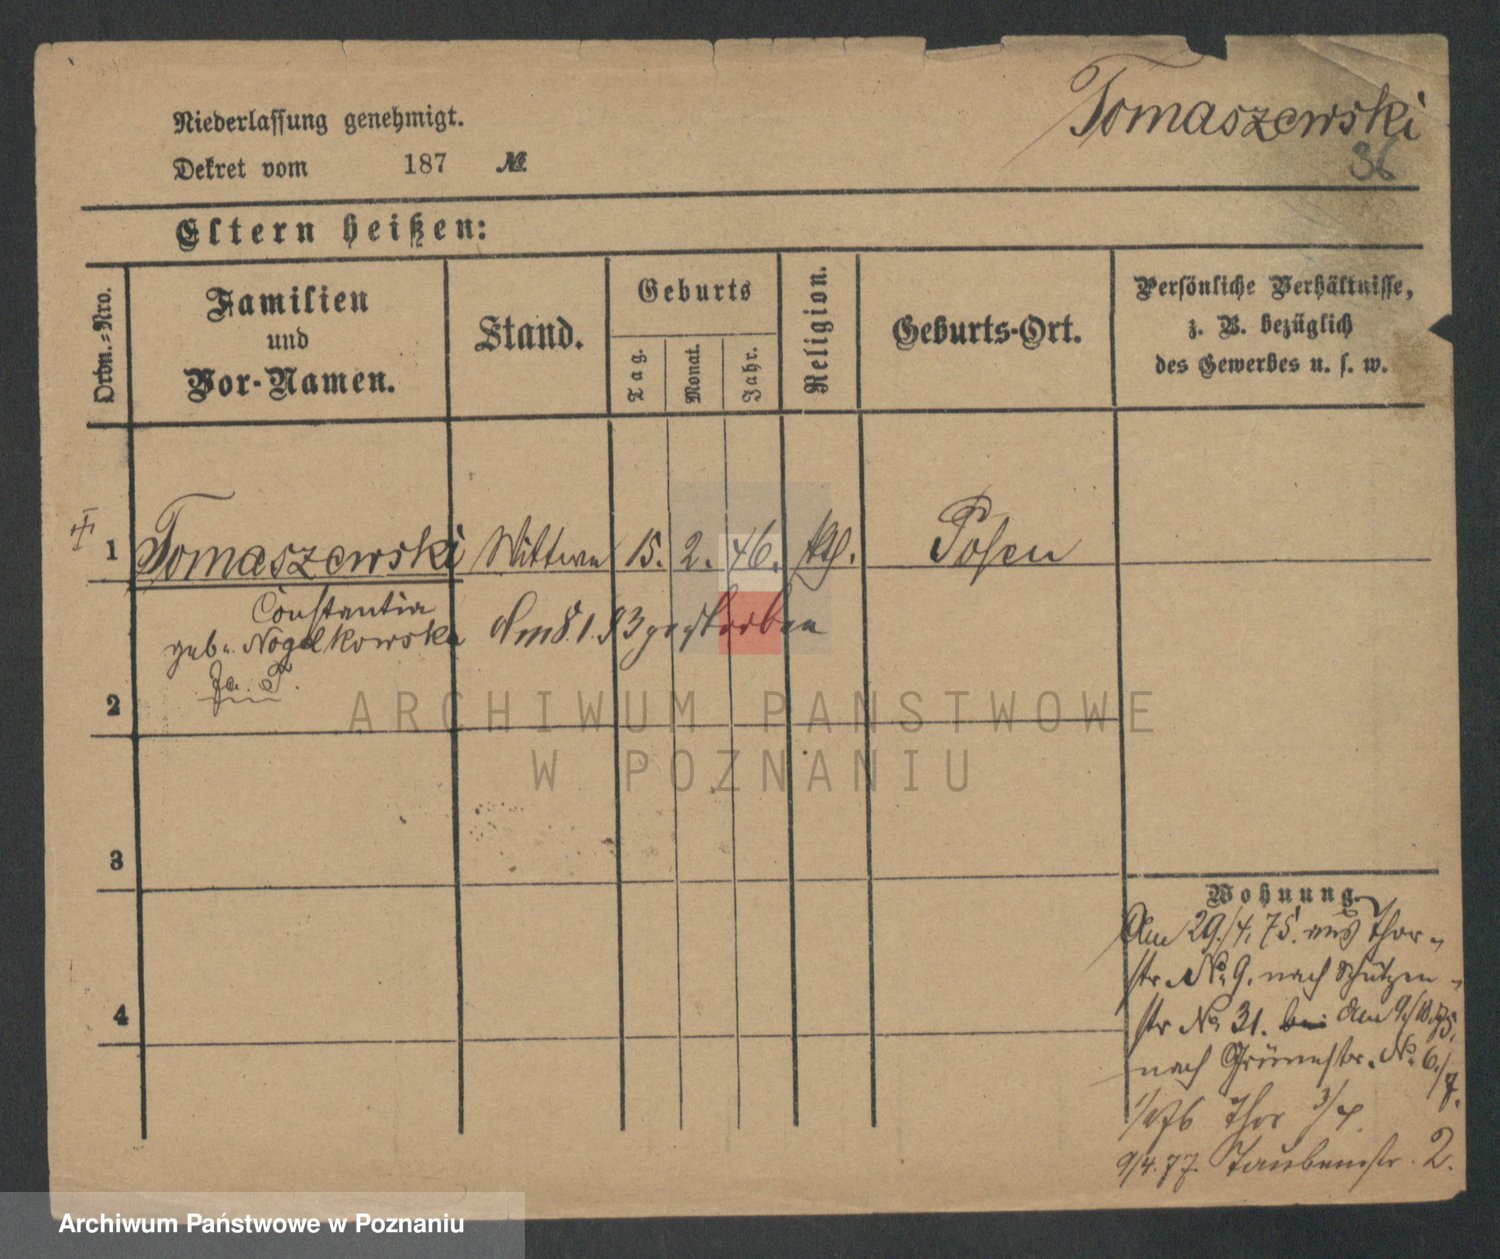 Niederlassung genehmigt.
Tomaszewski
Dekret vom 187 №
36
Eltern heißen:
Ordn.-Nro.
Familien
und
Vor-Namen.
Stand.
Geburts
Tag.
Monat.
Jahr.
Religion.
Geburts-Ort.
Persönliche Verhältnisse,
z. B. bezüglich
des Gewerbes u. s. w.
1 Tomaszewski Wittwe 15. 2. 46. kth. Posen
Constantia
geb. Nogalkowska
Am 8.1.93 gestorben
2
ARCHIWUM PAŃSTWOWE
W POZNANIU
3
Wohnung.
Am 29./4. 75. aus Thor-
str. No. 9. nach Schützen-
str No 31. Am 9/10.75.
nach Grünestr. No. 6./7.
4
1/4 76 Thor 3/4.
9/4.77. Taubenstr. 2.
Archiwum Państwowe w Poznaniu